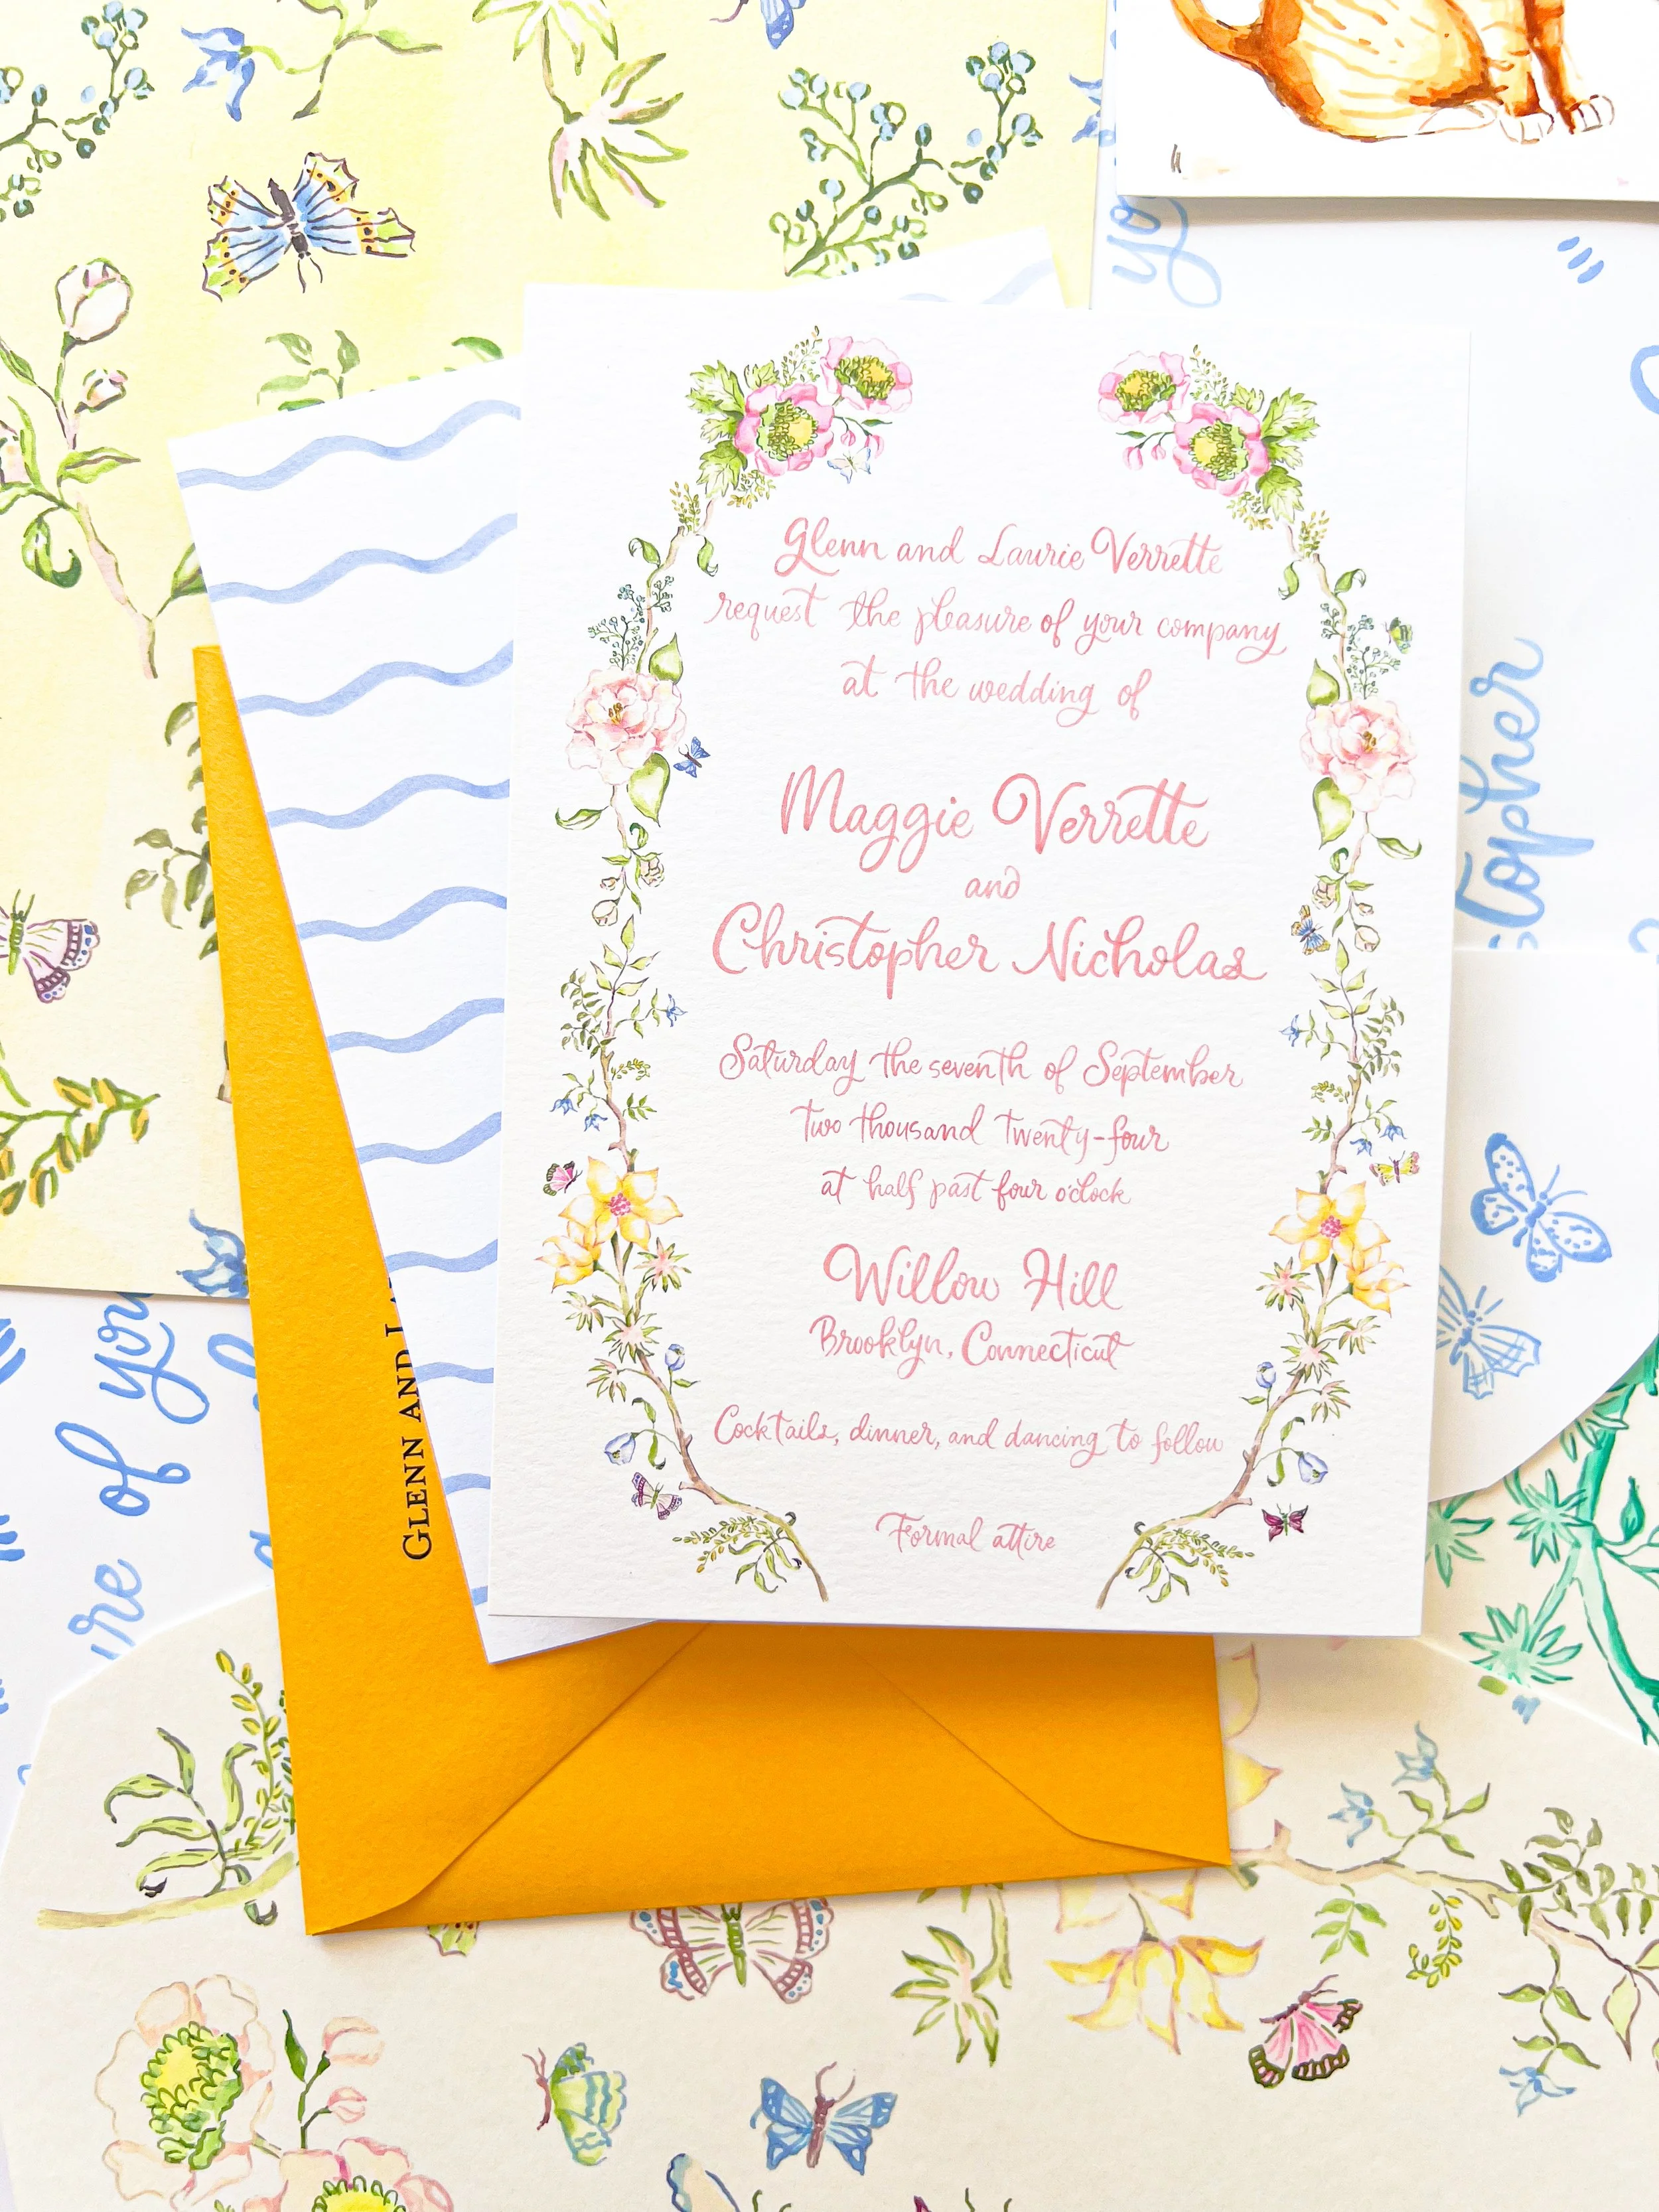 Glenn and Laurie Verrette
request the pleasure of your company
at the wedding of
Maggie Verrette
and
Christopher Nicholas
Saturday the seventh of September
two thousand twenty-four
at half past four o'clock
Willow Hill
Brooklyn, Connecticut
Cocktails, dinner, and dancing to follow
Formal attire
GLENN AND
of you